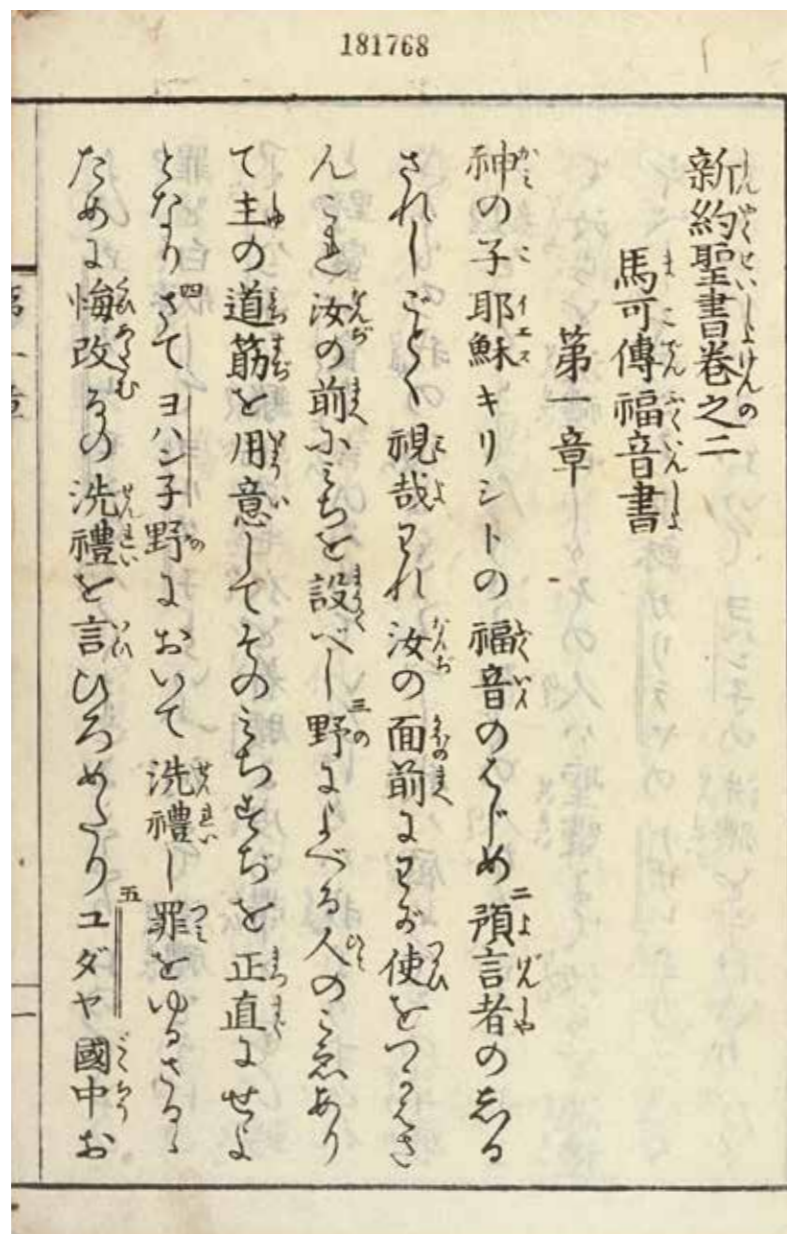 181768
新約聖書巻之二
馬可傳福音書
第一章
神の子耶穌キリシトの福音のはじめ二預言者の志る
されしごとく視哉われ汝の面前にわが使をつかはさ
んこれ汝の前にみちを設べし三野によべる人のこゑあり
て主の道筋を用意してそのみちすぢを正直にせよ
となり四さてヨハン子野において洗禮し罪をゆるさるゝ
ために悔改るの洗禮を言ひろめたり五ユダヤ國中お